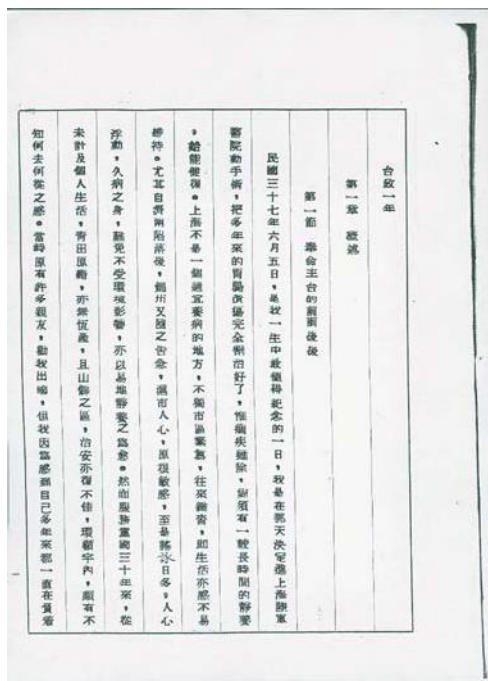 台政一年
第一章 概述
第一節 奉命主台的前前後後
民國三十七年六月五日,是我一生中最值得紀念的一日,我是在那天決定進上海陸軍
醫院動手術,把多年來的胃腸潰瘍完全割治好了,惟痼疾雖除,尚須有一較長時間的靜養
,始能健復。上海不是一個適宜養病的地方,不獨市區繁囂,往來雜沓,即生活亦感不易
維持。尤其自濟南陷落後,錦州又隨之告急,滬市人心,原很敏感,至是謠諑日多,人心
浮動,久病之身,難免不受環境影響,亦以易地靜養之為愈。然而服務黨國三十年來,從
未計及個人生活,青田原籍,亦無恆產,且山僻之區,治安亦復不佳,環顧宇內,頗有不
知何去何從之感。當時原有許多親友,勸我出國,但我因為感到自己多年來都一直在負着